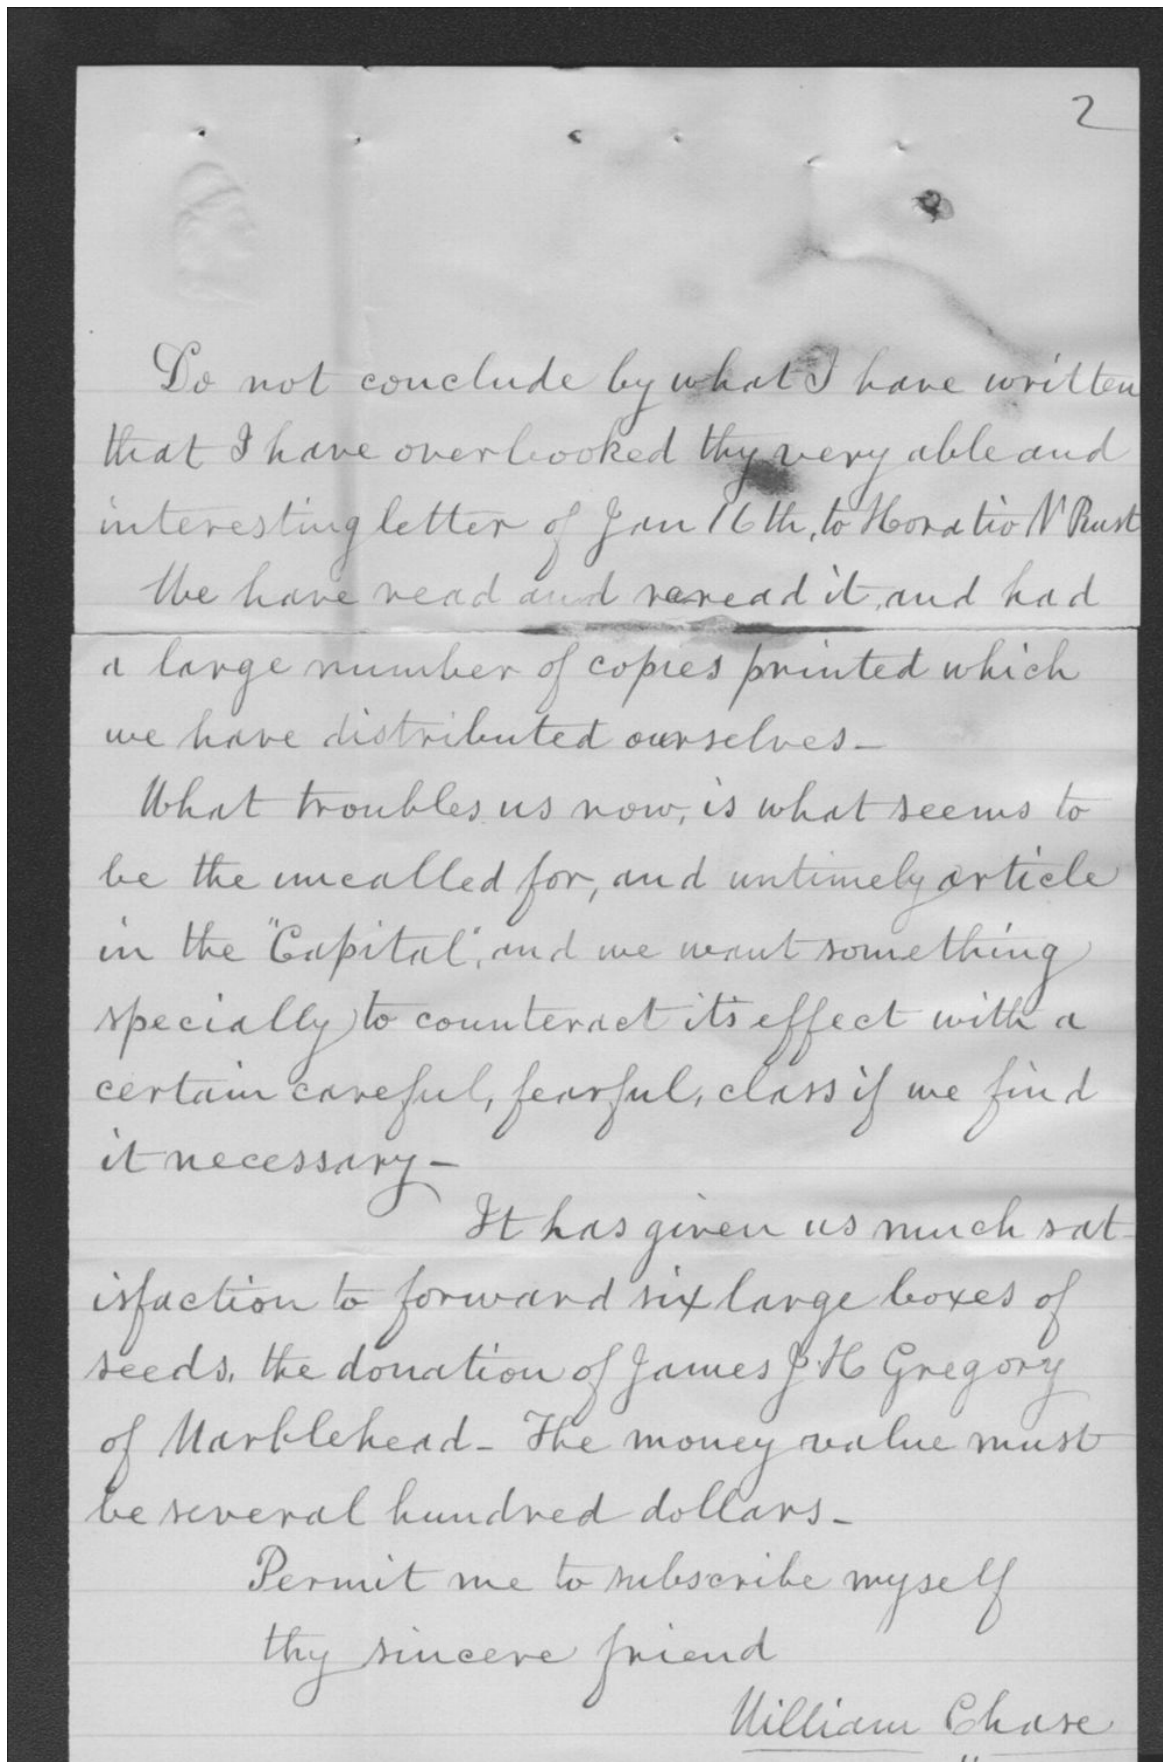 2
Do not conclude by what I have written
that I have overlooked thy very able and
interesting letter of Jan 16th, to Horatio N Rust
We have read and reread it, and had
a large number of copies printed which
we have distributed ourselves—
What troubles us now, is what seems to
be the uncalled for, and untimely article
in the "Capital", and we want something
specially to counteract it's effect with a
certain careful, fearful, class if we find
it necessary—
It has given us much sat-
isfaction to forward six large boxes of
seeds, the donation of James J. H Gregory
of Marblehead— The money value must
be several hundred dollars—
Permit me to subscribe myself
thy sincere friend
William Chase